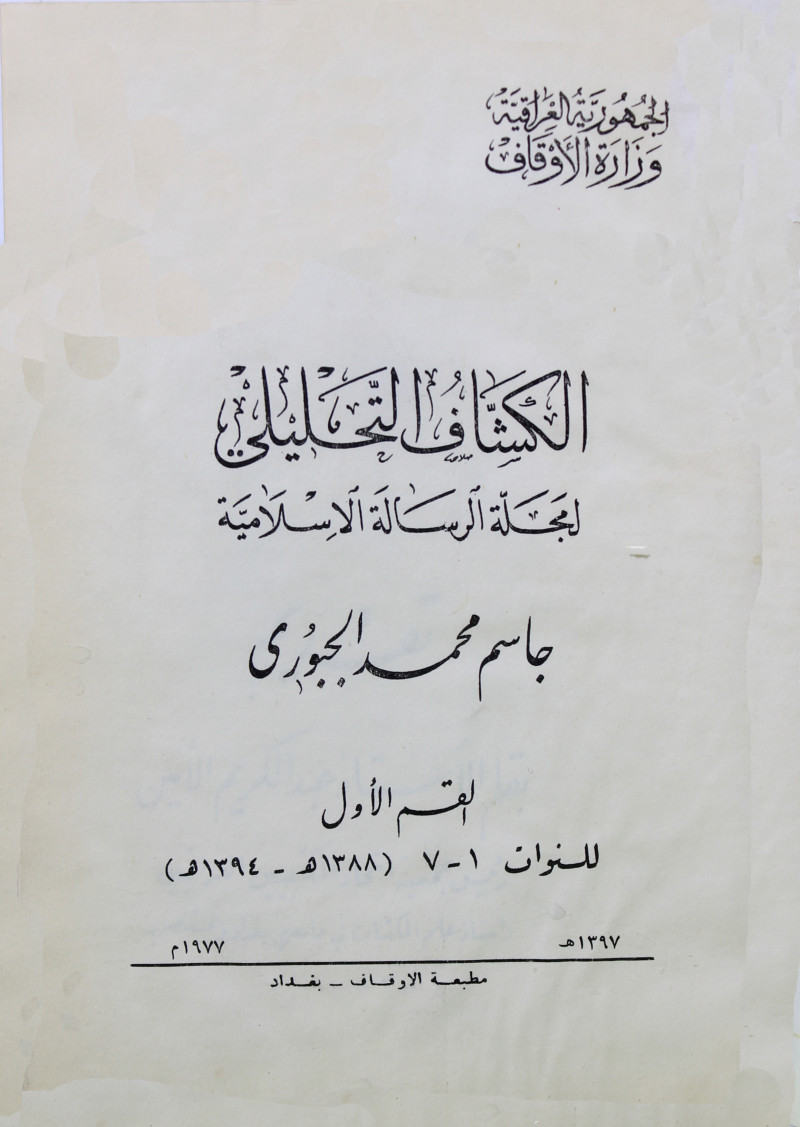 الجمهورية العراقية
وزارة الأوقاف
الكشاف التحليلي
لمجلة الرسالة الإسلامية
جاسم محمد الجبوري
القسم الأول
للسنوات ١ - ٧ (١٣٨٨هـ - ١٣٩٤هـ)
١٣٩٧هـ ١٩٧٧م
مطبعة الاوقاف - بغداد